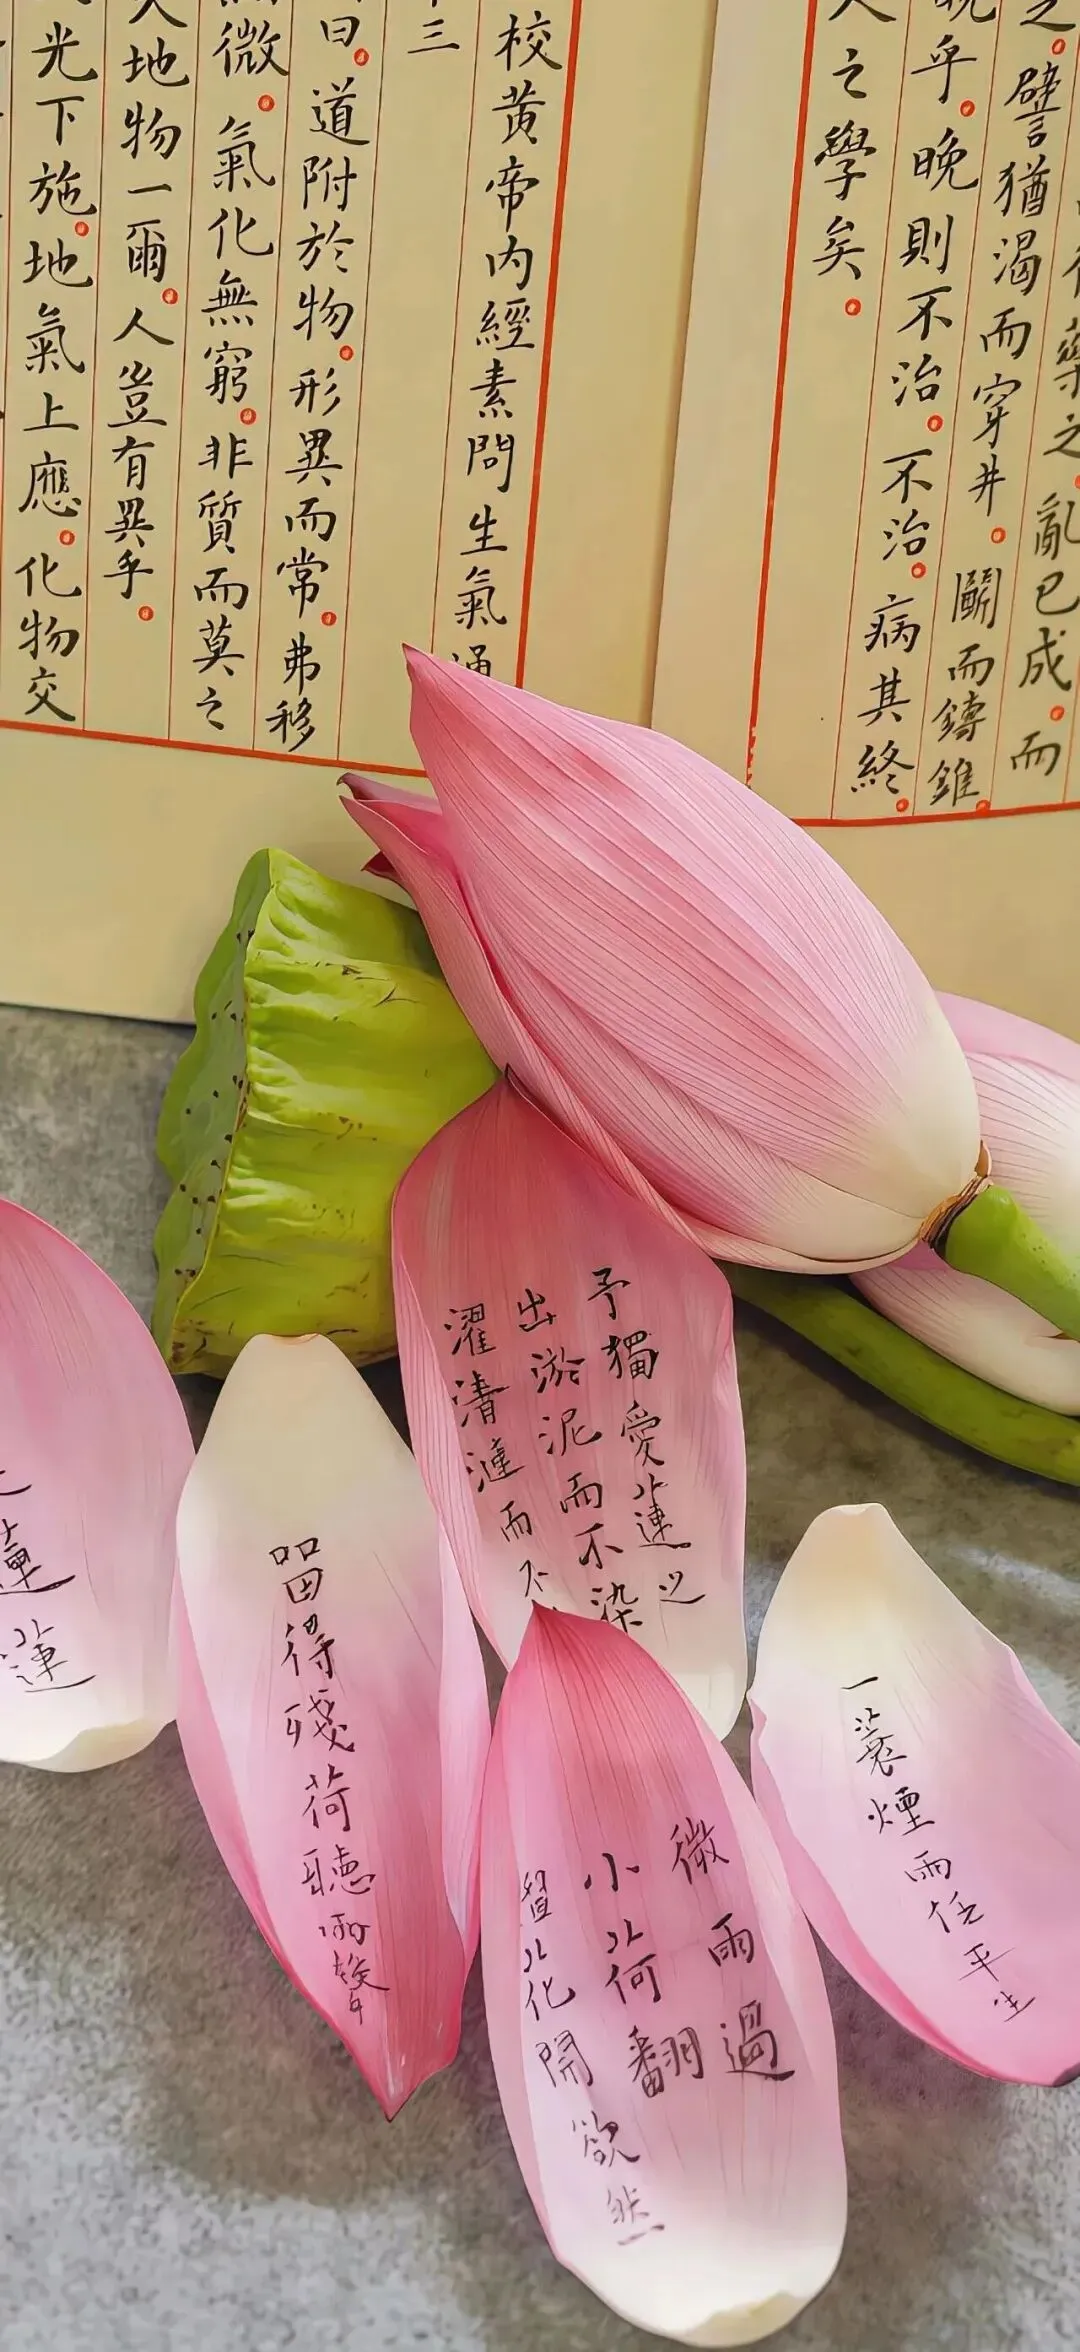 藥之亂已成。而
之。譬猶渴而穿井。鬭而鑄錐。
晚乎。晚則不治。不治。病其終。
之學矣。
校黃帝內經素問生氣通
三
曰。道附於物。形異而常。弗移
微。氣化無窮。非質而莫之
地物一爾。人豈有異乎。
光下施。地氣上應。化物交
予獨愛蓮之
出淤泥而不染
濯清漣而不
一蓑煙雨任平生
微雨過
小荷翻
榴花開欲然
留得殘荷聽雨聲
蓮
蓮